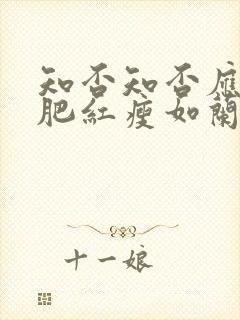 知否知否應
肥紅瘦如蘭
十一娘